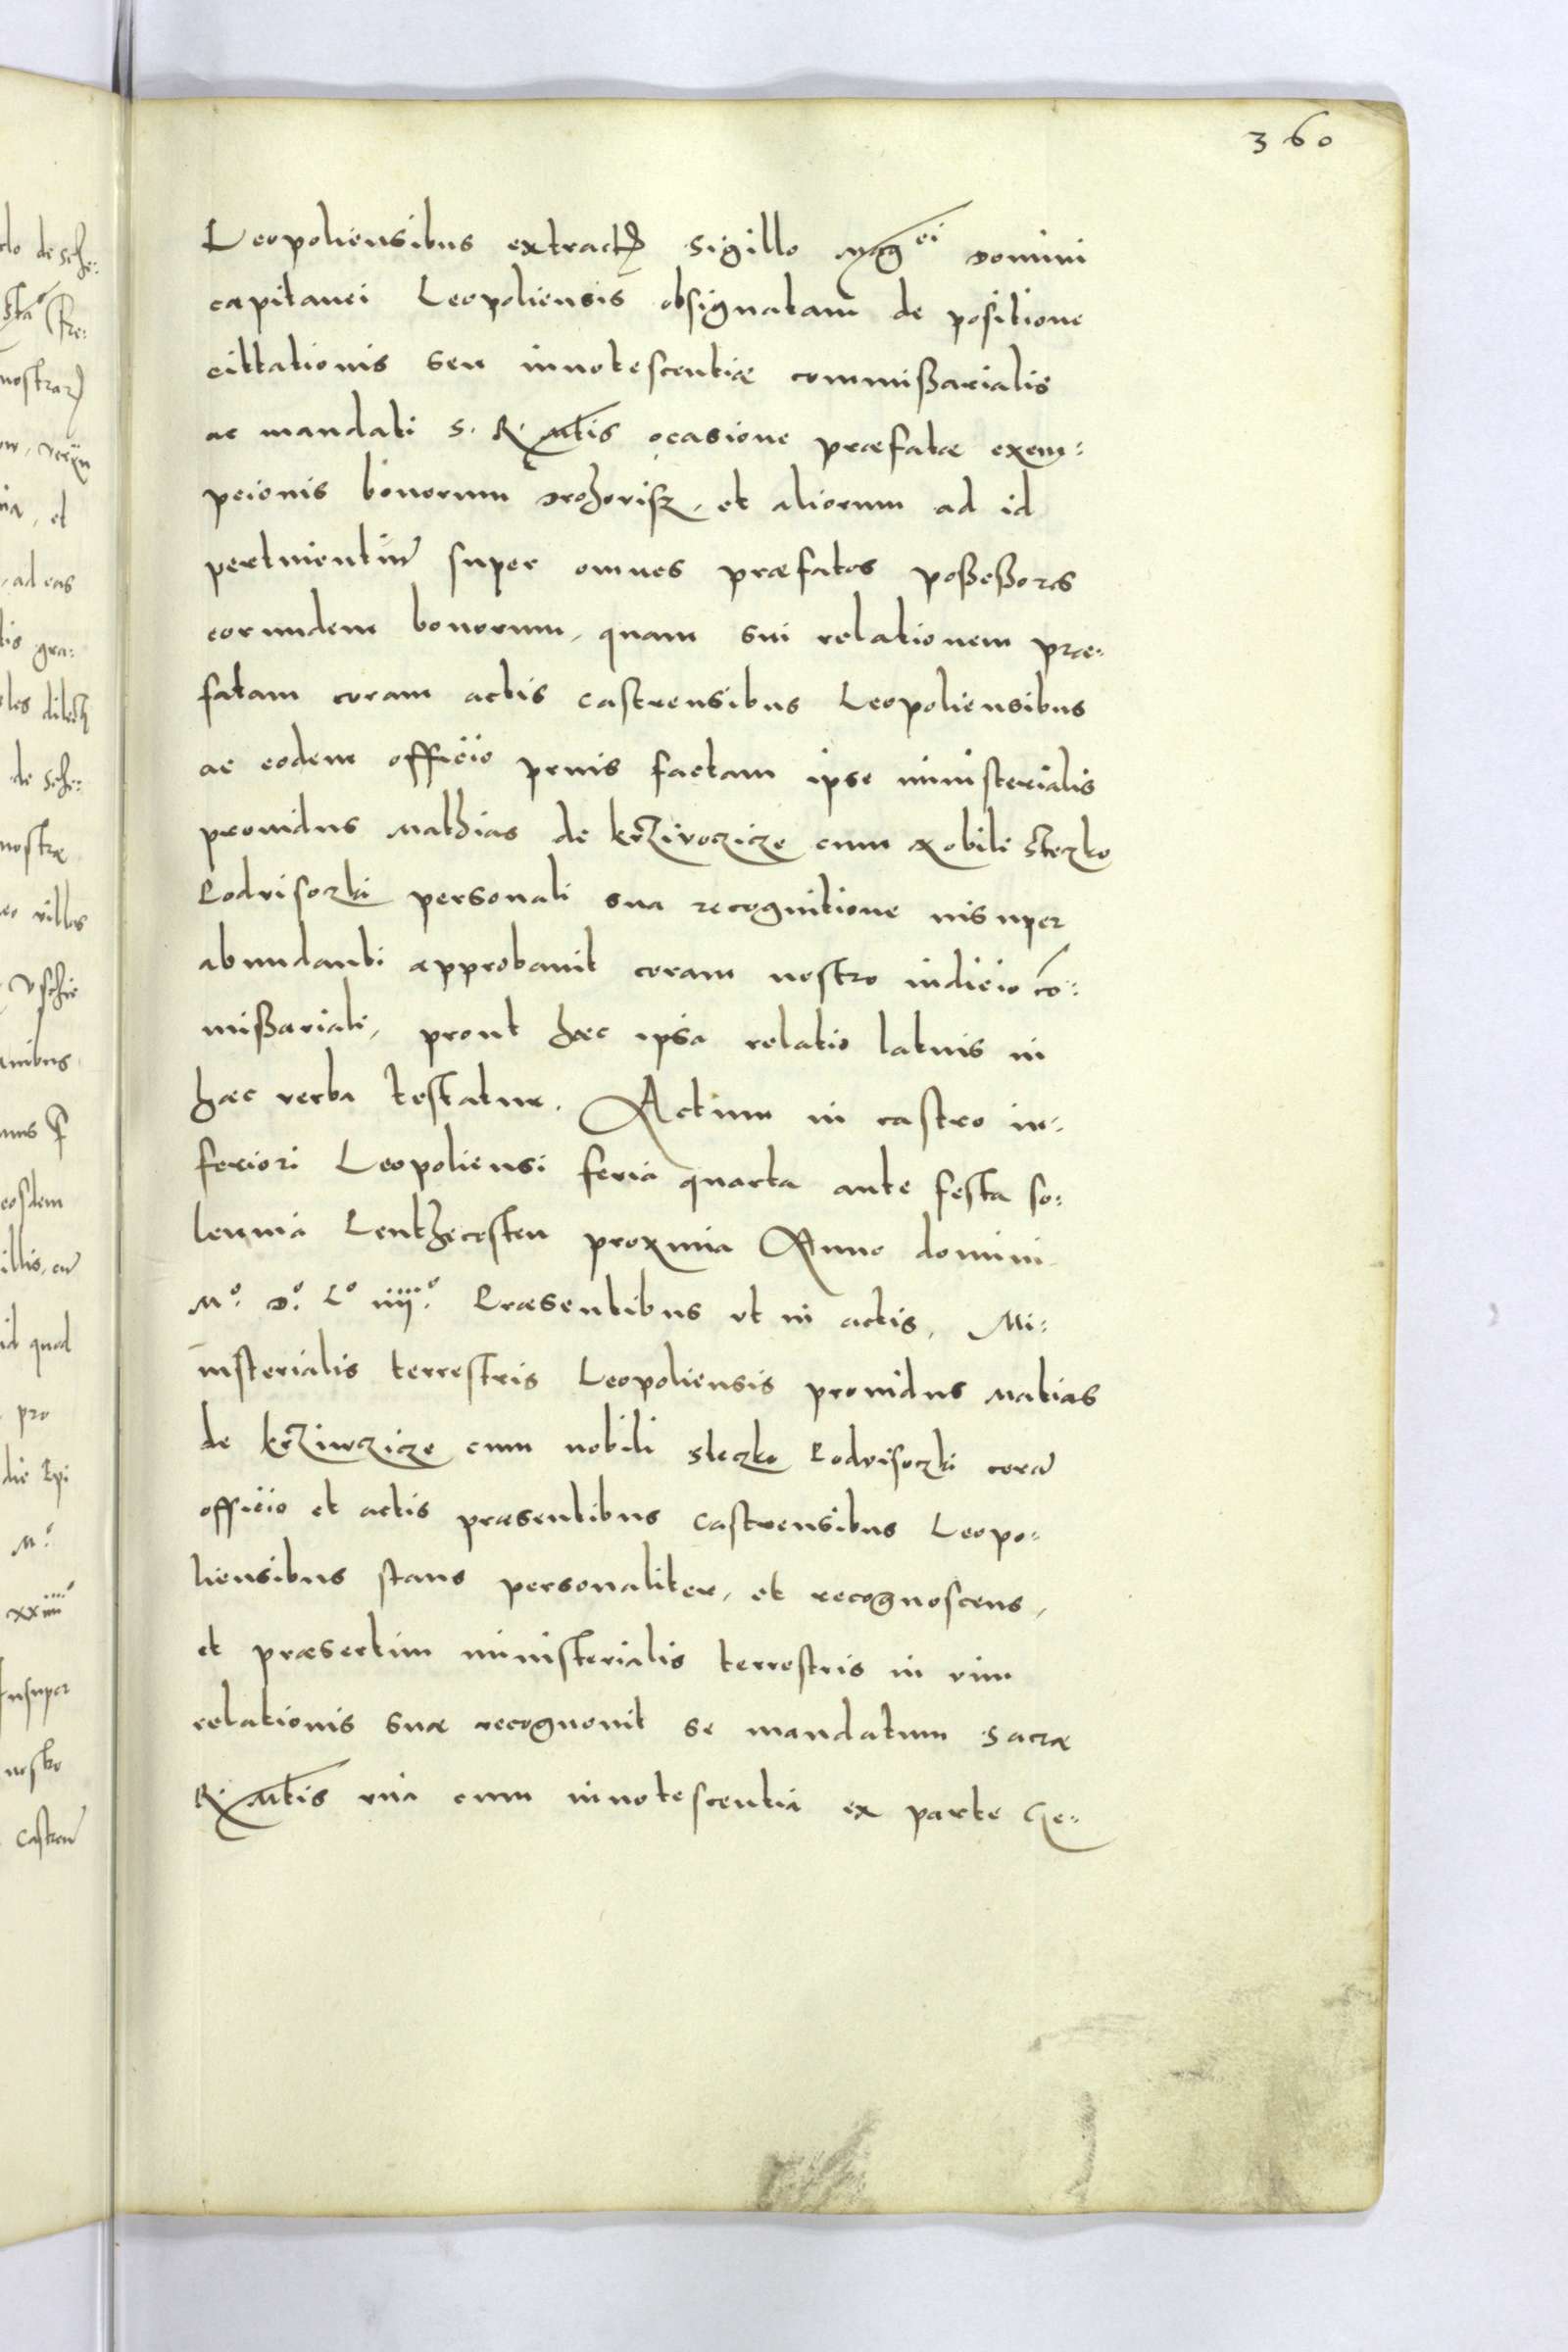 360
Leopoliensibus extract sigillo Mag^ci domini
capitanei Leopoliensis obsignatam de positione
cittationis seu innotescentiæ commißarialis
ac mandati S. R. Mtis ocasione præfatæ exem:
pcionis bonorum Drohorisz, et aliorum ad id
pertinentiũ super omnes præfatos poßeßores
eorundem bonorum, quam sui relationem præ:
fatam coram actis castrensibus Leopoliensibus
ac eodem officio prius factam ipse ministerialis
prouidus Mathias de krzivczicze cum Nobili Steczko
Podvisoczki personali sua recognitione insuper
abundanti approbauit coram nostro iudicio cõ:
mißariali, prout hæc ipsa relatio latius in
hæc verba testatur. Actum in castro in:
feriori Leopoliensi feria quarta ante festa so:
lennia Penthecosten proxima Anno domini
Mº. Dº. Lº iiijº. Præsentibus vt in actis. Mi:
nisterialis terrestris Leopoliensis prouidus Matias
de krziwczicze cum nobili Steczko Podvisoczki corã
officio et actis præsentibus castrensibus Leopo:
liensibus stans personaliter, et recognoscens,
et præsertim ministerialis terrestris in vim
relationis suæ recognouit se mandatum Sacræ
R. Mtis vna cum innotescentia ex parte Ge: